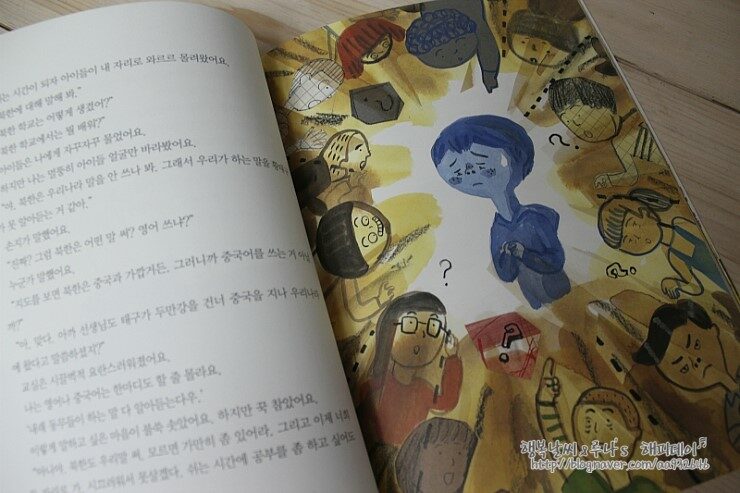 쉬는 시간이 되자 아이들이 내 자리로 와르르 몰려왔어요.
북한에 대해 말해 봐."
북한 학교는 어떻게 생겼어?"
북한 학교에서는 뭘 배워?"
아이들은 나에게 자꾸자꾸 물었어요.
하지만 나는 멀뚱히 아이들 얼굴만 바라봤어요.
"야, 북한은 우리나라 말을 안 쓰나 봐. 그래서 우리가 하는 말을
못 알아듣는 거 같아."
말했어요.
"진짜? 그럼 북한은 어떤 말 써? 영어 쓰나?"
누군가 말했어요.
"지도를 보면 북한은 중국과 가깝거든. 그러니까 중국어를 쓰는 거
까?"
"아, 맞다. 아까 선생님도 태구가 두만강을 건너 중국을 지나 우리나라
에 왔다고 말씀하셨지?"
교실은 시끌벅적 요란스러워졌어요.
나는 영어나 중국어는 한마디도 할 줄 몰라요.
'내래 동무들이 하는 말 다 알아듣는다우.'
이렇게 말하고 싶은 마음이 불쑥 솟았어요. 하지만 꾹 참았어요.
북한도 우리말 써. 모르면 가만히 좀 있어라. 그리고 이제 너희
시끄러워서 못살겠다. 쉬는 시간에 공부를 좀 하고 싶어도
?
?
?
?
?
행복날씨 루나's 해피데이
http://blog.naver.com/aa932616